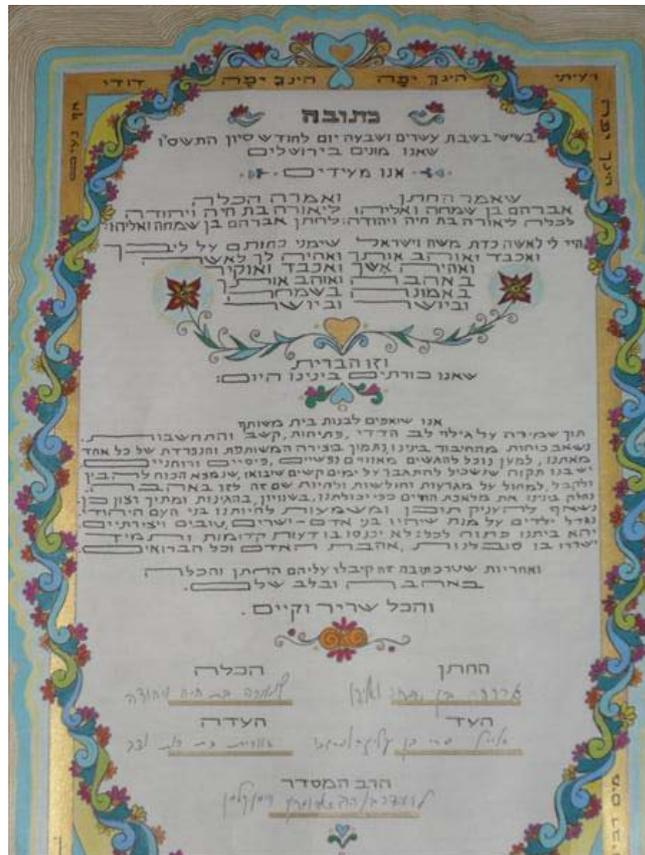 רעיתי הינך יפה הינך יפה דודי
אף נעים
הינך יפה
כתובה
בשישי בשבת עשרים ושבעה יום לחודש סיון התשס"ו
שאנו מונים בירושלים
אנו מעידים
שאמר החתן ואמרה הכלה
אברהם בן שמחה ואליהו ליאורה בת חיה ויהודה
לכלה ליאורה בת חיה ויהודה: לחתן אברהם בן שמחה ואליהו:
היי לי לאשה כדת משה וישראל שימני כחותם על ליבך
ואכבד ואוהב אותך ואהיה לך לאשה
ואהיה אשך ואכבד ואוקיר
באהבה ואוהב אותך
באמונה בשמחה
וביושר וביושר
וזו הברית
שאנו כורתים בינינו היום:
אנו שואפים לבנות בית משותף
תוך שמירה על גילוי לב הדדי, פתיחות, קשב והתחשבות.
נשאב כוחות מהחיבור בינינו, נתמוך ביצירה המשותפת והנפרדת של כל אחד
מאתנו, למען נוכל להגשים מאוויים נפשיים, פיסיים ורוחניים.
יש בנו תקוה שנשכיל להתגבר על ימים קשים שיבואו, שנמצא הכוח להבין
ולקבל, למחול על מגרעות וחולשות ולהיות שם זה לזו באהבה.
נחלק בינינו את מלאכת החיים כפי יכולתנו, בשוויון, בהגינות ומתוך רצון כן.
נשאף להעניק תוכן ומשמעות להיותנו בני העם היהודי.
נגדל ילדים על מנת שיהיו בני אדם - ישרים, טובים ויצירתיים.
יהא ביתנו פתוח לכל: לא יכנסו בו דעות קדומות ותמיד
ישררו בו סובלנות, אהבת האדם וכל הברואים.
ואחריות שטר כתובה זה קיבלו עליהם החתן והכלה
באהבה ובלב שלם.
והכל שריר וקיים.
החתן הכלה
אברהם בן שמחה ואליהו ליאורה בת חיה ויהודה
העד העדה
בת
הרב המסדר